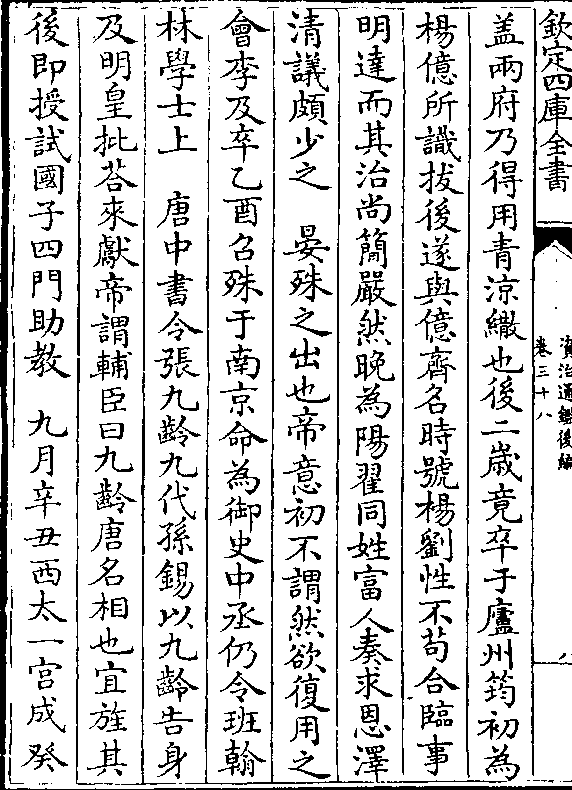 欽定四庫全書
資治通鑑後編
卷三十八
八
盖兩府乃得用青涼繖也後二歲竟卒于廬州筠初為
楊億所識拔後遂與億齊名時號楊劉性不苟合臨事
明達而其治尚簡嚴然晚為陽翟同姓富人奏求恩澤
清議頗少之　晏殊之出也帝意初不謂然欲復用之
會李及卒乙酉召殊于南京命為御史中丞仍令班翰
林學士上　唐中書令張九齡九代孫錫以九齡告身
及明皇批荅來獻帝謂輔臣曰九齡唐名相也宜旌其
後即授試國子四門助教　九月辛丑西太一宫成癸